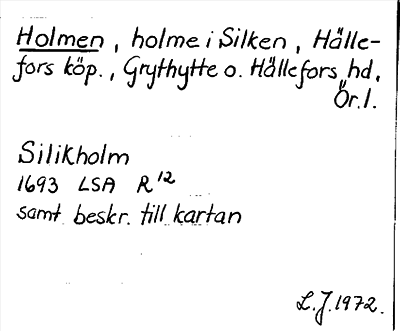 Holmen, holme i Silken, Hälle-
fors köp., Grythytte o. Hällefors hd,
Ör.l.
Silikholm
1693 LSA R12
samt beskr. till kartan
L.J. 1972.